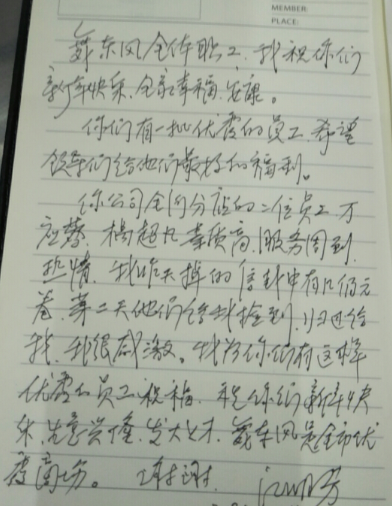 MEMBER:
PLACE:
龚东风全体职工，我祝你们
新年快乐，全家幸福，安康。
你们有一批优秀的员工，希望
领导们给他们最好的福利。
你公司全河分店的二位员工万
应梦、杨超凡素质高，服务周到
热情，我昨天掉的信封中有几佰元
卷，第二天他们给我捡到，归还给
我，我很感激。我为你们有这样
优秀的员工祝福，祝你们新年快
乐，生意兴隆，发大火才，龚东风是全市优
秀商场。 谢谢